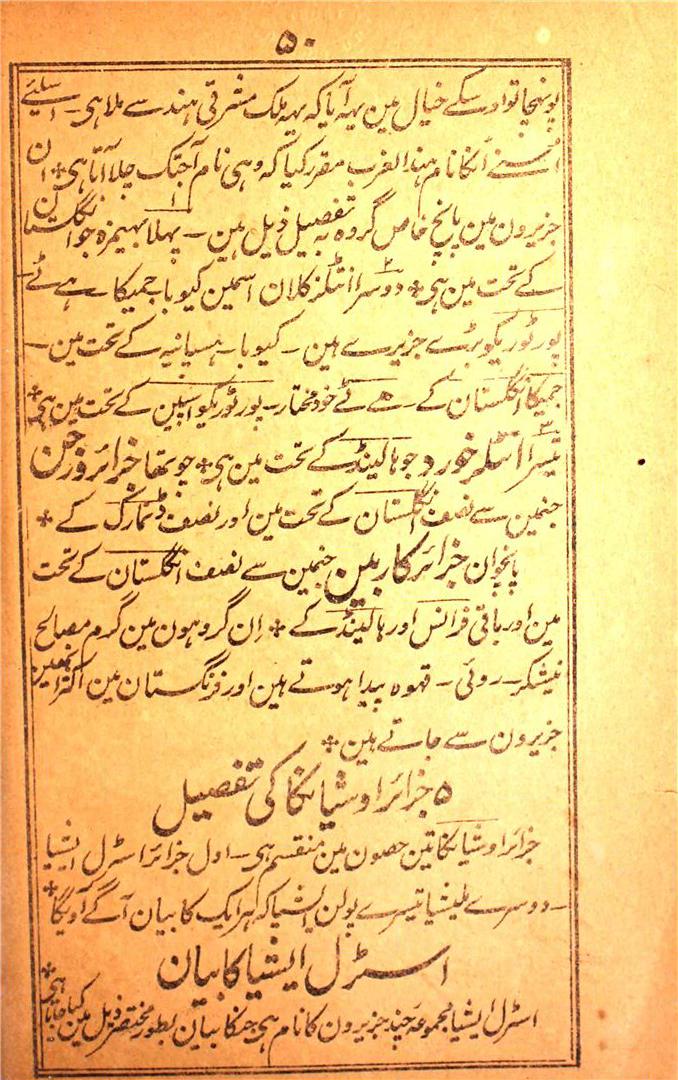 ۵۰
پونہچا تو اوسکے خیال مین یہہ آیا کہ یہہ ملک مشرقی ہند سے ملا ہی ۔ اسلیئے
اُسنے اُنکا نام ہند الغرب مقرر کیا کہ وہی نام آجتک چلا آتا ہی ÷ ان
جزیرون مین پانچ خاص گروہ بہ تفصیل ذیل ہین ۔ پہلا بہیمزہ جو انگلستان
کے تحت مین ہی ÷ دوسرا انٹلز کلان اسمین کیوبا جمیکا ہے ٹے
پورٹوریکو بڑے جزیرے ہین ۔ کیوبا ۔ ہسپانیہ کے تحت مین ۔
جمیکا انگلستان کے ۔ ہے ٹے خود مختار ۔ پورٹوریکو اسپین کے تحت مین ہی ÷
تیسرا انٹلز خورد جو ہالینڈ کے تحت مین ہی ÷ چوتھا جزائر ورجن
جنمین سے نصف انگلستان کے تحت مین اور نصف ڈنمارک کے ÷
پانچوان جزائر کاربین جنمین سے نصف انگلستان کے تحت
مین اور باقی فرانس اور ہالینڈ کے ÷ اِن گروہون مین گرم مصالح
نیشکر ۔ روئی ۔ قہوہ پیدا ہوتے ہین اور فرنگستان مین اکثر انہین
جزیرون سے جاتے ہین ÷
۵ جزائر اوشیانکا کی تفصیل
جزائر اوشیانکا تین حصون مین منقسم ہی ۔ اول جزائر اسٹرل ایشیا
۔ دوسرے ملیشیا تیسرے پولن ایشیا کہ ہر ایک کا بیان آگے آویگا ÷
اسٹرل ایشیا کا بیان
اسٹرل ایشیا مجموعہ چند جزیرون کا نام ہی جنکا بیان بطور مختصر ذیل مین کیا جاتا ہی ÷